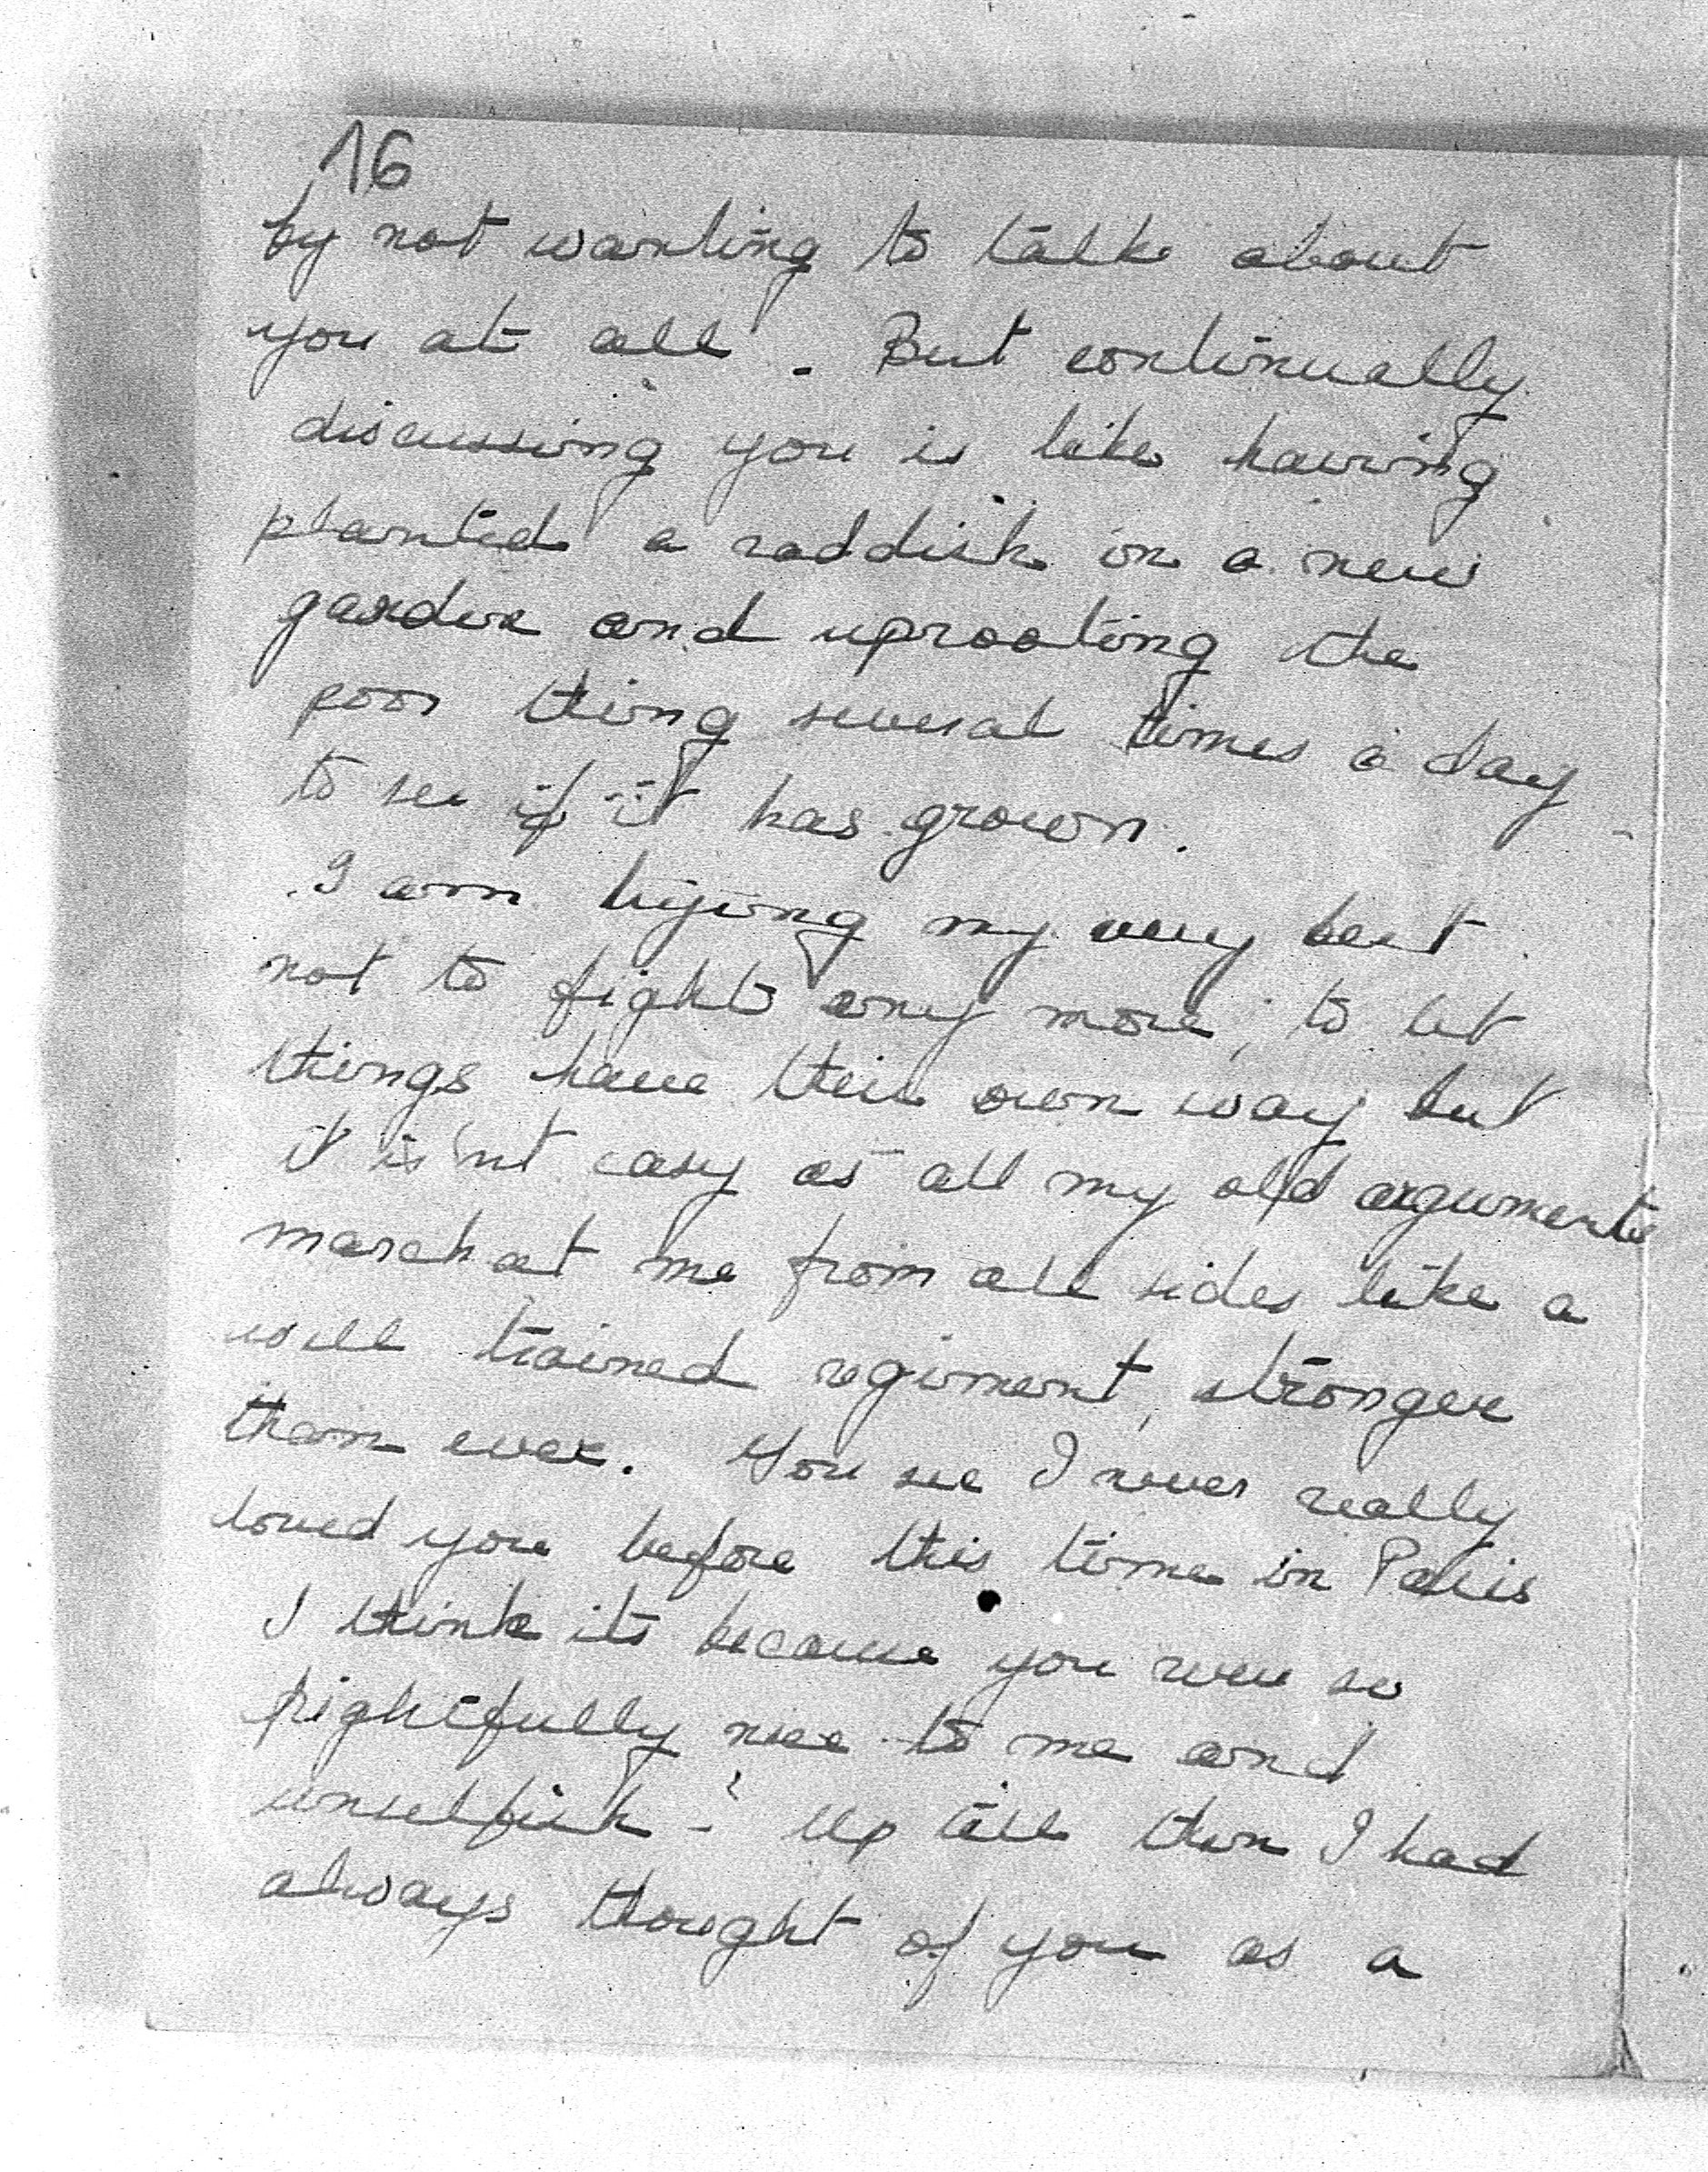 16
by not wanting to talk about
you at all. But continually
discussing you is like having
planted a raddish in a new
garden and uprooting the
poor thing several times a day
to see if it has grown.
I am trying my very best
not to fight any more, to let
things have their own way but
it is'nt easy as all my old arguments
march at me from all sides like a
well trained regiment, stronger
than ever. You see I never really
loved you before this time in Paris
I think its because you were so
frightfully nice to me and
unselfish - Up till then I had
always thought of you as a